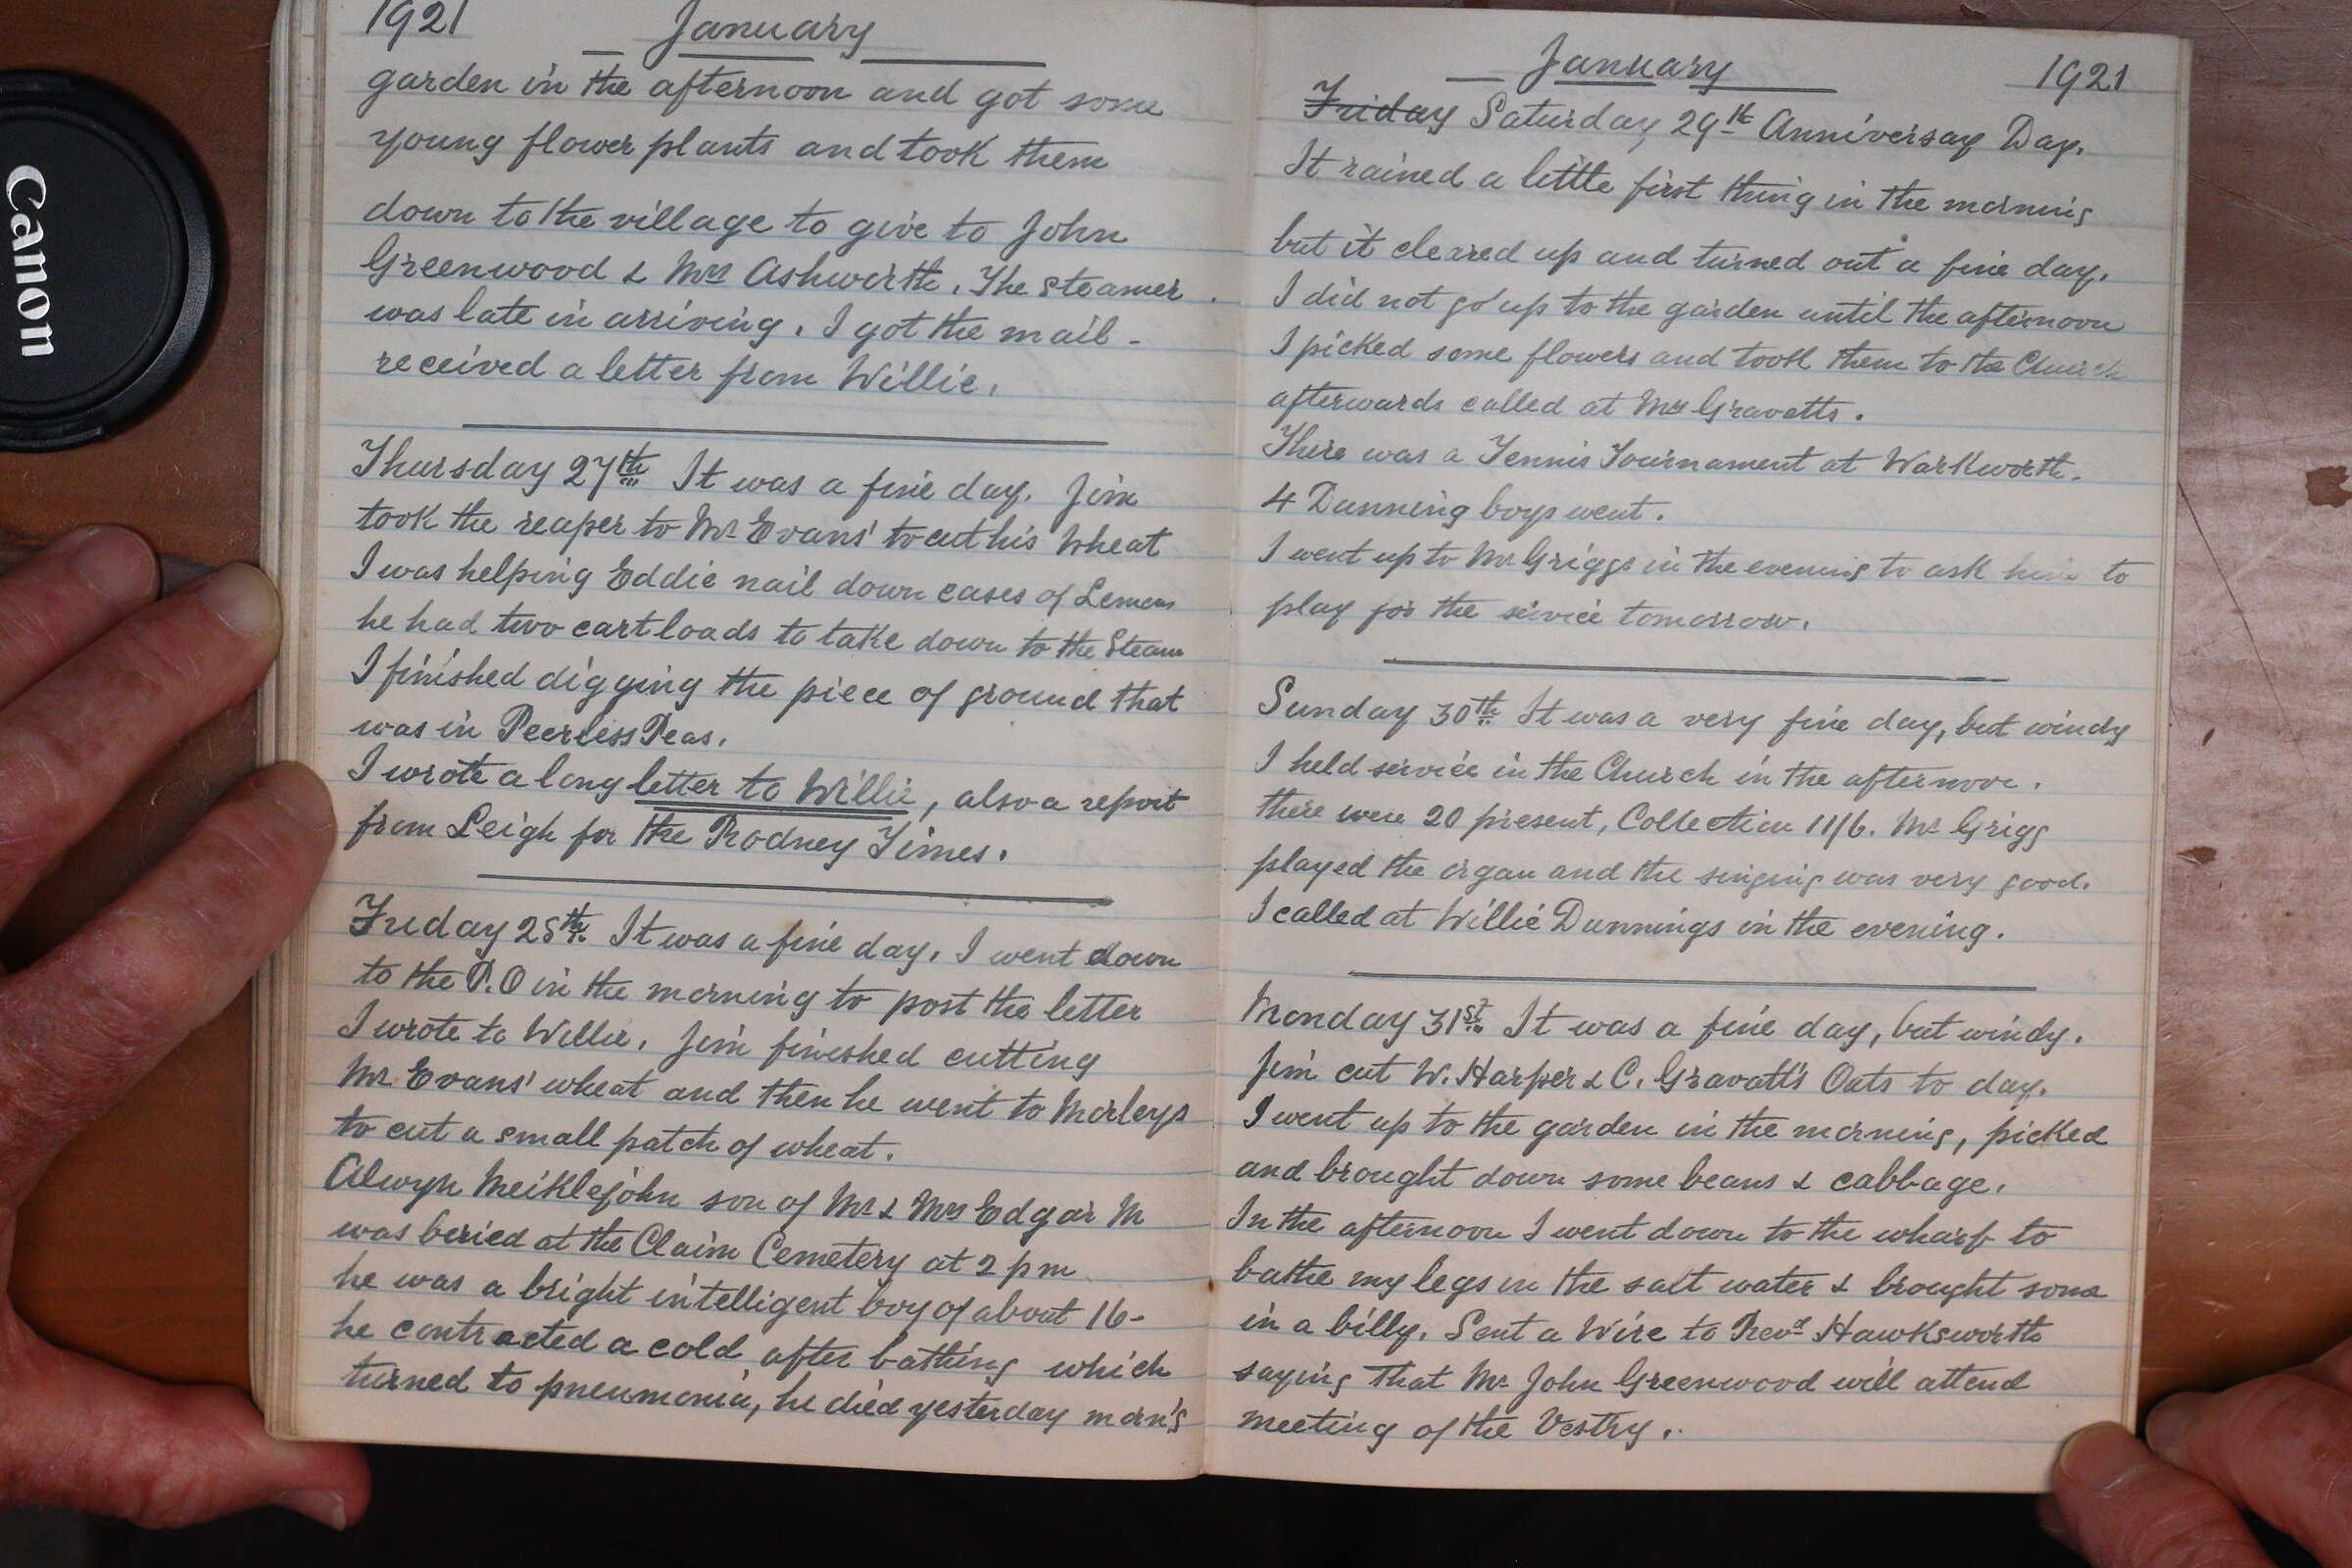 Canon
1921 January
garden in the afternoon and got some
young flower plants and took them
down to the village to give to John
Greenwood & Mrs Ashworth. The Steamer
was late in arriving. I got the mail -
received a letter from Willie.
Thursday 27th It was a fine day. Jim
took the reaper to Mr Evans' to cut his wheat
I was helping Eddie nail down cases of Lemons
he had two cart loads to take down to the Steam
I finished digging the piece of ground that
was in Peerless Peas.
I wrote a long letter to Willie, also a report
from Leigh for the Rodney Times.
Friday 28th It was a fine day. I went down
to the P.O in the morning to post the letter
I wrote to Willie. Jim finished cutting
Mr Evans' wheat and then he went to Morleys
to cut a small patch of wheat.
Alwyn Meiklejohn son of Mr & Mrs Edgar M
was beried at the Claim Cemetery at 2 pm
he was a bright intelligent boy of about 16-
he contracted a cold after bathing which
turned to pneumonia, he died yesterday morn'g
January 1921
Friday Saturday 29th Anniversay Day.
It rained a little first thing in the morning
but it cleared up and turned out a fine day.
I did not go up to the garden until the afternoon
I picked some flowers and took them to the Church
afterwards called at Mrs Gravatts.
There was a Tennis Tournament at Warkworth.
4 Dunning boys went.
I went up to Mr Griggs in the evening to ask him to
play for the service tomorrow.
Sunday 30th It was a very fine day, but windy
I held service in the Church in the afternoon.
there were 20 present, Collection 11/6. Mr Grigg
played the organ and the singing was very good.
I called at Willie Dunnings in the evening.
Monday 31st It was a fine day, but windy.
Jim cut W. Harper & C. Gravatt's Oats to day.
I went up to the garden in the morning, picked
and brought down some beans & cabbage.
In the afternoon I went down to the wharf to
bathe my legs in the salt water & brought some
in a billy. Sent a Wire to Revd Hawksworth
saying that Mr John Greenwood will attend
meeting of the Vestry.